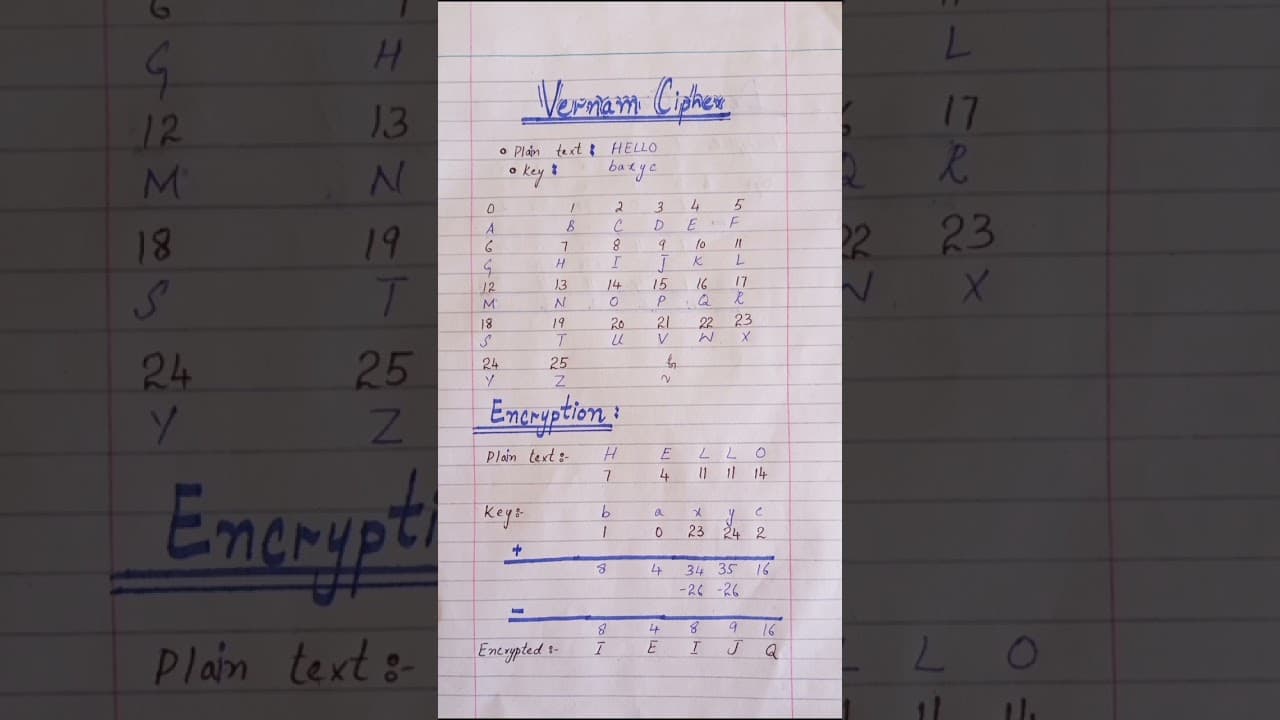 Vernam Cipher
• Plain text : HELLO
• Key : baxyc
0 1 2 3 4 5
A B C D E F
6 7 8 9 10 11
G H I J K L
12 13 14 15 16 17
M N O P Q R
18 19 20 21 22 23
S T U V W X
24 25
Y Z
Encryption :
Plain text :- H E L L O
7 4 11 11 14
Key :- b a x y c
1 0 23 24 2
+
8 4 34 35 16
-26 -26
-
8 4 8 9 16
Encrypted :- I E I J Q